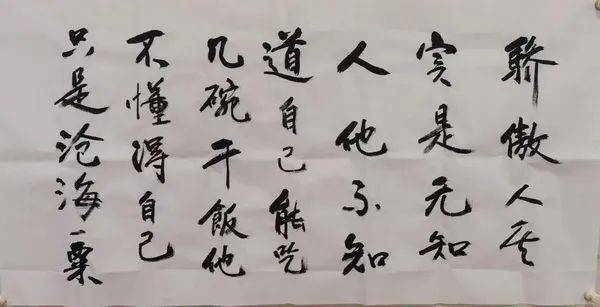 骄傲人其
实是无知
人他不知
道自己能吃
几碗干飯他
不懂得自己
只是沧海一粟